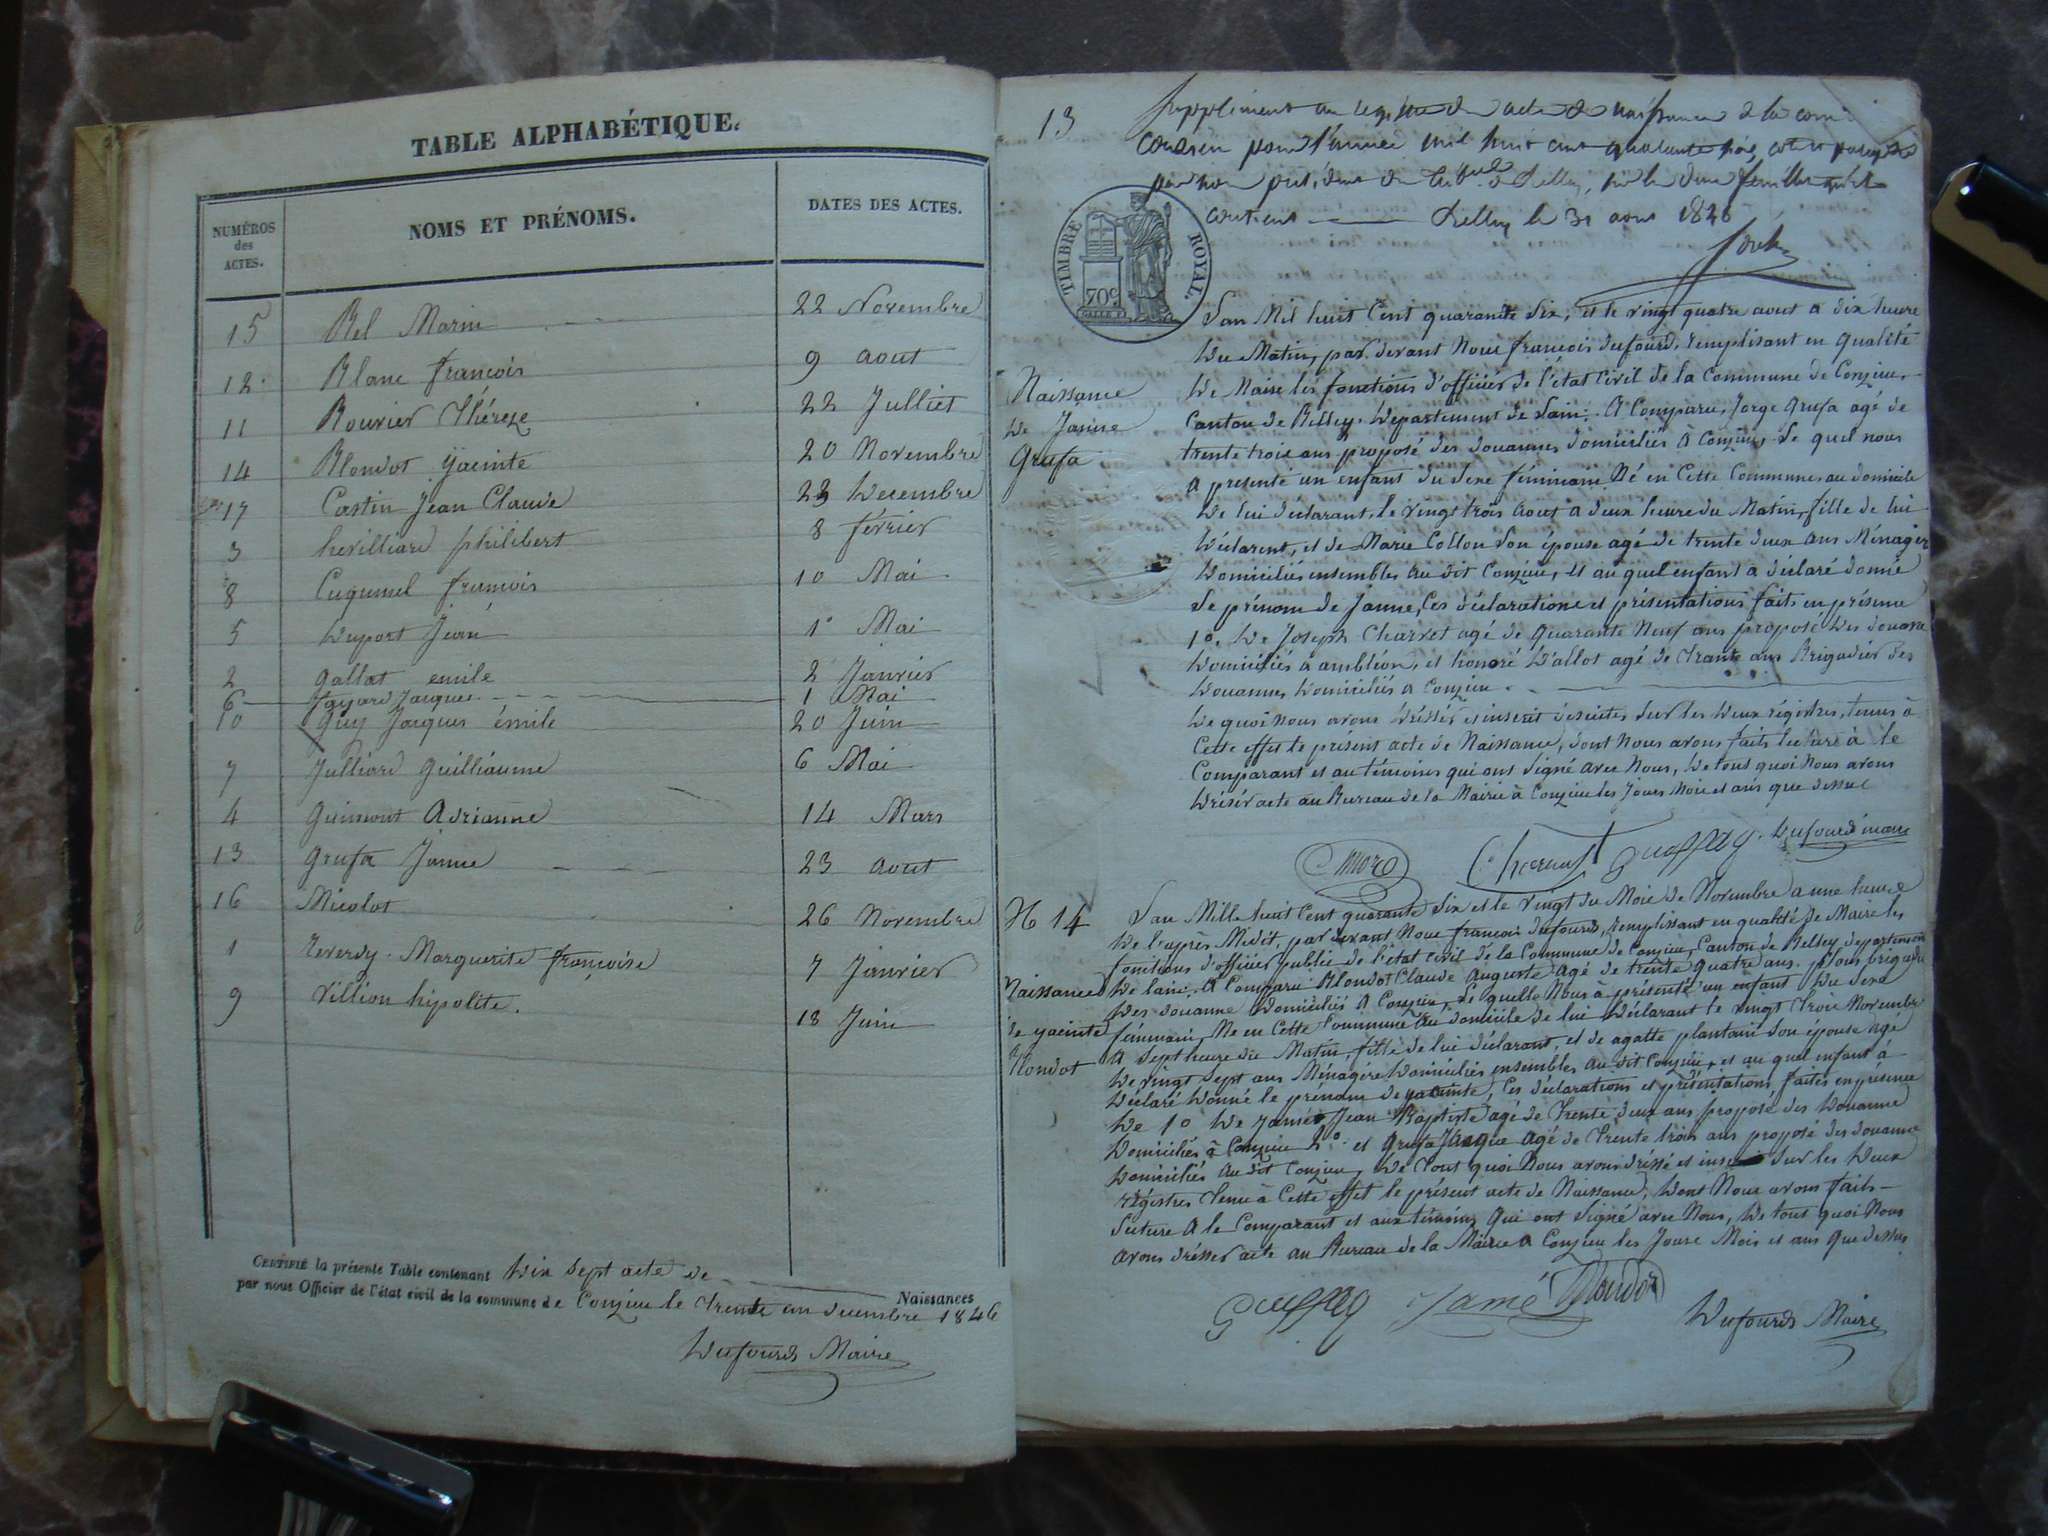 TABLE ALPHABÉTIQUE.
NUMÉROS des ACTES.
NOMS ET PRÉNOMS.
DATES DES ACTES.
15 Bel Marin 22 Novembre
12 Blanc francois 9 aout
11 Bouvier Thérèze 22 Julliet
14 Blondot yacinte 20 Novembre
17 Castin Jean Claude 23 Decembre
3 philibert 8 février
8 Cugumel francois 10 Mai
5 Duport Jean 1° Mai
2 gallat emile 2 Janvier
6 Jacques 1 Mai
10 Guy Jacques émile 20 Juin
7 Julliard guilliaume 6 Mai
4 Guimont Adrianne 14 Mars
13 Grufa Janne 23 aout
16 Micolot 26 Novembre
1 Reverdy Marguerite françoise 7 Janvier
9 Villion hipolite. 18 Juin
CERTIFIÉ la présente Table contenant Dix Sept acte de Naissances
par nous Officier de l'état civil de la commune de Conzieu le trente un decembre 1846
Dufourd Maire
13
Suppliment au registre des actes de naissance de la
pour l'année mil huit cent quarante six,
par nous président du Tribal de Belley,
contient Belley le 31 aout 1846
TIMBRE ROYAL.
70c
Lan Mil huit Cent quarante Six, et le vingt quatre aout a dix heure
Du Matin, par devant Nous francois dufourd, remplisant en qualité
Naissance
De Janne
Grufa
De Maire les fonctions d'officier de l'état Civil de la Commune de Conzieu,
Canton de Belley, Département de Lain. A Comparu, Jorge Grufa agé de
trente trois ans proposé des douannes domiciliés à Conzieu. Le quel nous
a présenté un enfant du Sexe féminain Né en Cette Commune au domicile
De lui déclarant, le vingt trois aout a deux heure du Matin, fille de lui
Déclarent, et de Marie Collon Son épouse agé de trente deux ans Ménager
Domiciliés ensembles au dit Conzieu, et au quel enfant a déclaré donné
Le prénom de Janne, Ces déclarations et présentations faits en présence
1° De Joseph Charvet agé de quarante Neuf ans proposé des douane
Domiciliés a ambléon, et honoré Dallot agé de trante ans Brigadier des
Douannes Domiciliés a Conzieu.
De quoi nous avons Dréssér et inscrit desuites Sur les Deux régistres, tenus à
Cette effet le présent acte de Naissance, dont Nous avons faits lecture à le
Comparant et au témoins qui ont Signé avec Nous, De tous quoi Nous avons
Drésér acte au Bureau de la Mairie à Conzieu les Jours Mois et ans que dessus
Dufourd maire
N 14
Lan Mille huit Cent quarante Six et le vingt du Mois de Novembre a une heure
De l'après Midit, par devant Nous francois dufourd, remplissant en qualité de Maire les
fonctions d'officier public de l'état civil de la Commune de Conzieu, Canton de Belley département
Naissance
de yacinte
Blondot
De lain. A Comparu Blondot Claude Auguste agé de trente quatre ans. Sous brigadier
Des douanne Domiciliés A Conzieu, Le quelle Nous à présenté un enfant Du Sexe
féminain, Né en Cette Commune au domicile de lui Déclarant le vingt trois Novembre
A Sept heure du Matin, fille de lui déclarant, et de agatte plantain Son épouse agé
De vingt Sept ans Ménagère Domiciliés ensembles au dit Conzieu, et au quel enfant à
Déclaré Donné le prénom de yacinte, Ces déclarations et présentations faites en présence
De 1° De Jamé Jean Baptiste agé de Trente deux ans proposé des Douanne
Domiciliés à Conzieu 2° et Grufa Jacque agé de trente trois ans proposé des douanne
Domiciliés au dit Conzieu, De tout quoi Nous avons dréssé et Sur les Deux
régistres Tenu à Cette effet le présent acte de Naissance, Dont Nous avons faits
Lecture A le Comparant et aux témoins qui ont Signé avec Nous, De tout quoi Nous
avons drésser acte au Bureau de la Mairie a Conzieu les Jours Mois et ans que dessus
Jamé Blondot
Dufourds Maire